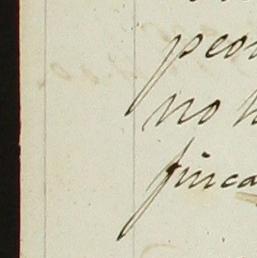 peor
no h
finca